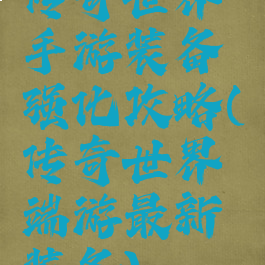 传奇世界
手游装备
强化攻略(
传奇世界
端游最新
装备)